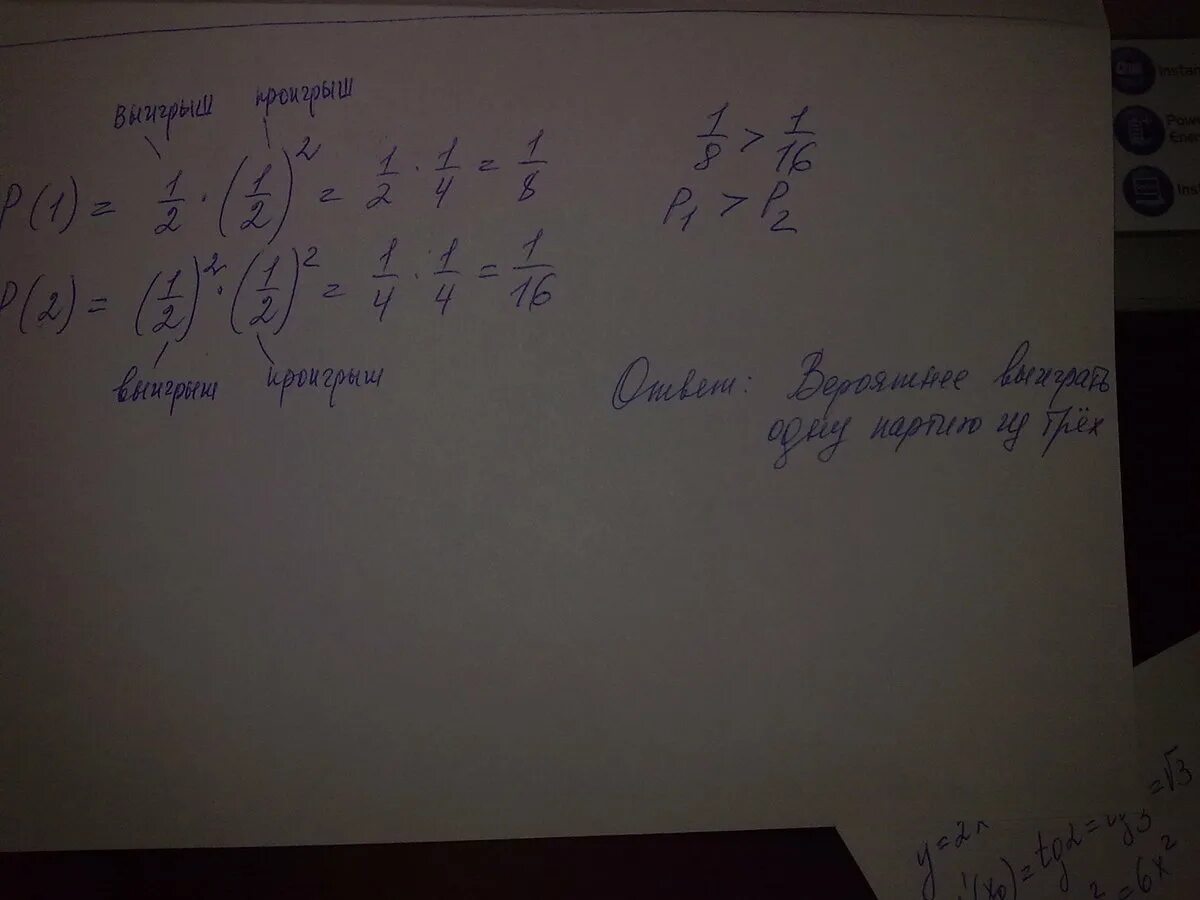 выигрыш проигрыш
P(1) = 1/2 · (1/2)² = 1/2 · 1/4 = 1/8
P(2) = (1/2)² · (1/2)² = 1/4 · 1/4 = 1/16
выигрыш проигрыш
1/8 > 1/16
P₁ > P₂
Ответ: Вероятнее выиграть
одну партию из трёх
Instan
Powe
Ener
Inst
y = 2x
= √3
(x₀) = tg2 =
= 6x²